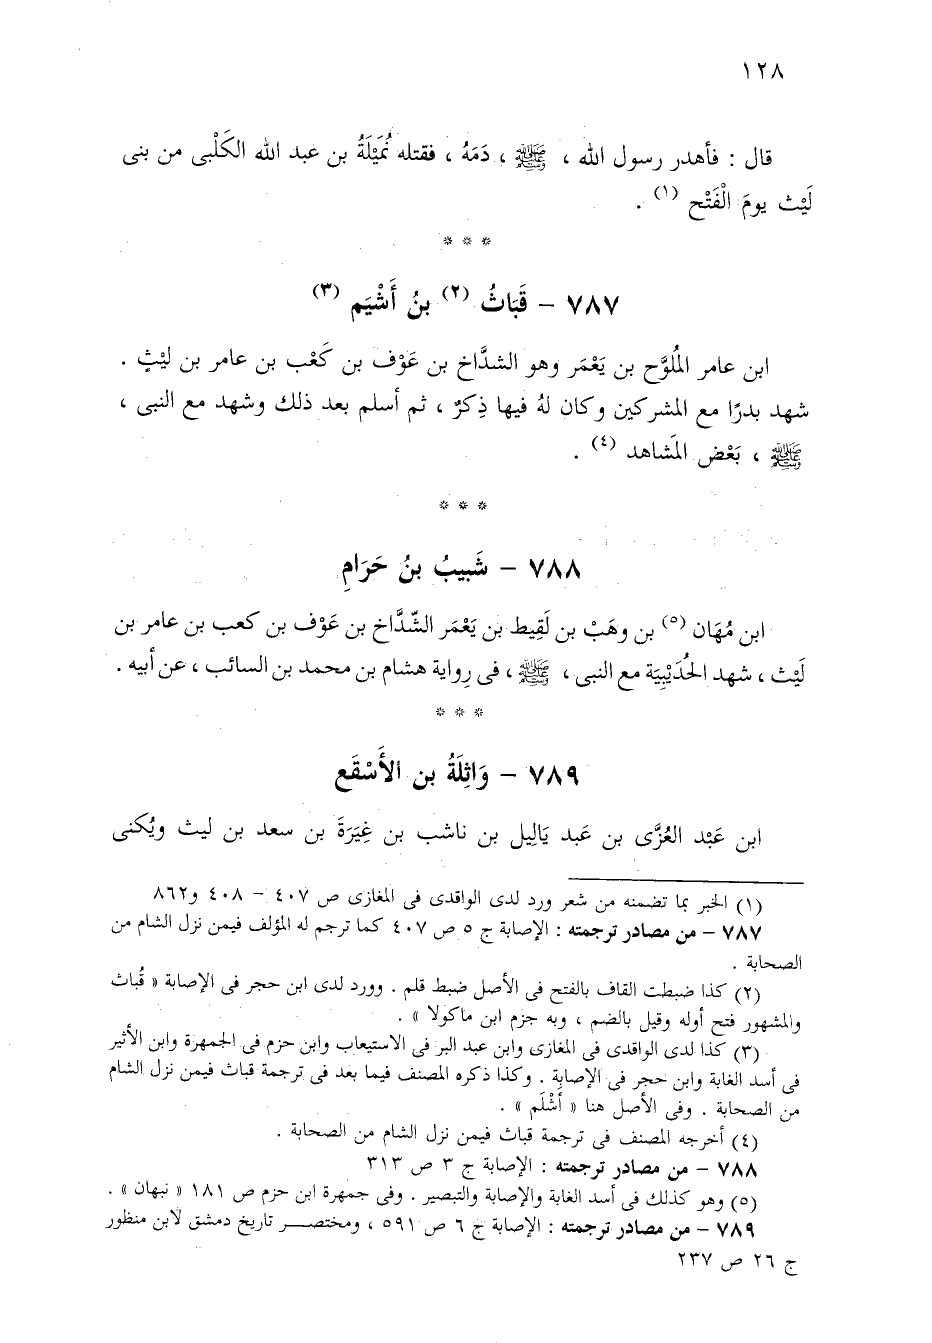 ١٢٨
قال : فأهدر رسول الله ، ﷺ ، دَمَهُ ، فقتله نُمَيْلَةُ بن عبد الله الكَلْبى من بنى
لَيْث يومَ الْفَتْح (١) .
* * *
٧٨٧ – قَبَاثُ (٢) بنُ أَشْيَم (٣)
ابن عامر المُلَوَّح بن يَعْمَر وهو الشدَّاخ بن عَوْف بن كَعْب بن عامر بن ليْثٍ .
شهد بدرًا مع المشركين وكان لهُ فيها ذِكرٌ ، ثم أسلم بعد ذلك وشهد مع النبى ،
ﷺ ، بَعْض المَشاهد (٤) .
* * *
٧٨٨ – شَبِيبُ بنُ حَرَامِ
ابن مُهَان (٥) بن وهَبْ بن لَقِيط بن يَعْمَر الشّدَّاخ بن عَوْف بن كعب بن عامر بن
لَيْث ، شهد الحُدَيْبِيَة مع النبى ، ﷺ ، فى رِواية هشام بن محمد بن السائب ، عن أبيه .
* * *
٧٨٩ – وَاثِلَةُ بن الأَسْقَع
ابن عَبْد العُزَّى بن عَبد يَالِيل بن ناشب بن غِيَرَةَ بن سعد بن ليث ويُكنى
(١) الخبر بما تضمنه من شعر ورد لدى الواقدى فى المغازى ص ٤٠٧ – ٤٠٨ و٨٦٢
٧٨٧ – من مصادر ترجمته : الإصابة ج ٥ ص ٤٠٧ كما ترجم له المؤلف فيمن نزل الشام من
الصحابة .
(٢) كذا ضبطت القاف بالفتح فى الأصل ضبط قلم . وورد لدى ابن حجر فى الإصابة « قُباث
والمشهور فتح أوله وقيل بالضم ، وبه جزم ابن ماكولا » .
(٣) كذا لدى الواقدى فى المغازى وابن عبد البر فى الاستيعاب وابن حزم فى الجمهرة وابن الأثير
فى أسد الغابة وابن حجر فى الإصابة . وكذا ذكره المصنف فيما بعد فى ترجمة قباث فيمن نزل الشام
من الصحابة . وفى الأصل هنا « أَشْلَم » .
(٤) أخرجه المصنف فى ترجمة قباث فيمن نزل الشام من الصحابة .
٧٨٨ – من مصادر ترجمته : الإصابة ج ٣ ص ٣١٣
(٥) وهو كذلك فى أسد الغابة والإصابة والتبصير . وفى جمهرة ابن حزم ص ١٨١ « نبهان » .
٧٨٩ – من مصادر ترجمته : الإصابة ج ٦ ص ٥٩١ ، ومختصر تاريخ دمشق لابن منظور
ج ٢٦ ص ٢٣٧